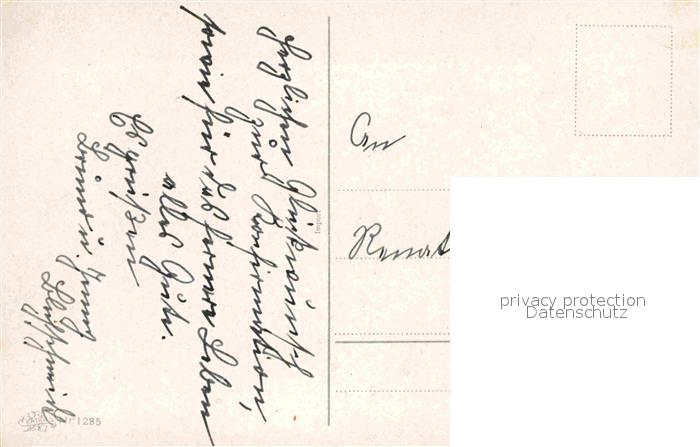 Herzlichen Glückwunsch
zur Konfirmation,
sowie für das fernere Leben
alles Gute.
Es grüßen
u.
An
Renat
Import
Nr 1285
privacy protection
Datenschutz